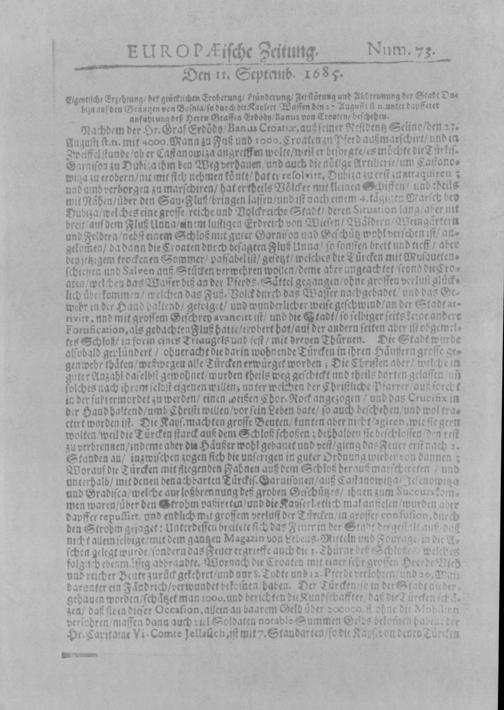 EUROPÆische Zeitung. Num. 73.
Den 11. Septemb. 1685.
Eigentliche Erzehlung/ der glücklichen Eroberung/ Plünderung/ Zerstörung und Abbrennung der Stadt Du-
biza auf den Gräntzen von Bosnia/ so durch die Käyserl. Waffen den 27 Augusti st.n. unter dapfferer
anführung deß Herrn Graffen Erdödy/ Banus von Croaten/ beschehen.
Nachdem der Hr. Graf Erdödy/ Banus Croatiæ, auß seiner Residentz Selino/ den 27.
Augusti st.n. mit 4000. Mann zu Fuß und 1000. Croaten zu Pferd außmarschirt/ und in
Zweiffel stunde/ ob er Castanowiza angreiffen wolte/ weil er besorgte/ es möchte die Türckis.
Garnison zu Dubiza ihm den Weg verhauen/ und auch die nötige Artillerie/ um Castano-
wiza zu erobern/ nit mit sich nehmen könte/ hat er resolvirt/ Dubiza zu erst zu attaquiren/
und umb verborgen zu marschiren/ hat er theils Völcker mit kleinen Schiffen/ und theils
mit Nähen/ über den Sau-Fluß/ bringen lassen/ und ist nach einem 4. tägigen Marsch bey
Dubiza/ welches eine grosse/ reiche und Volckreiche Stadt/ deren Situation lang/ aber nit
breit/ auf dem Fluß Unna/ einem lustigen Erdreich von Wiesen/ Wäldern/ Weingärten
und Feldern/ nebst einem Schloß mit guter Garnison und Geschütz wohl versehen ist/ an-
gekomen/ da dann die Croaten durch besagten Fluß Unna/ so sonsten breit und tieff/ aber
bey jetzigem trockenen Sommer/ passabel ist/ gesetzt/ welches die Türcken mit Musqueten-
schiessen und Salven auß Stücken verwehren wollen/ deme aber ungeachtet/ seynd die Croa-
ten/ welchen das Wasser biß an der Pferde Sättel gegangen/ ohne grossen verlust glück-
lich überkommen/ welchen das Fuß-Volck durch das Wasser nachgebadet/ und das Ge-
wehr in der Hand haltend/ gefolget/ und wunderlicher weise geschwind/ an der Stadt ar-
rivirt, und mit grossem Geschrey avanciret ist/ und die Stadt/ so selbiger seits keine andere
Fortification, als gedachten Fluß hatte/ erobert hat/ auf der andern seiten aber ist obgemel-
tes Schloß/ in form eines Triangels und fest/ mit dreyen Thürnen. Die Stadt wurde
alsobald geplündert/ ohneracht die darin wohnende Türcken in ihren Häusern grosse ge-
genwehr thäten/ weßwegen alle Türcken erwürget worden; Die Christen aber/ welche in
guter Anzahl daselbst gewohnet/ wurden theils weg geschickt und theils dorten gelassen/ um
solches nach ihrem selbst eigenen willen/ unter welchen der Christliche Pfarrer/ aus forcht
in der furi ermordet zu werden/ einen weißen Chor-Rock angezogen/ und das Crucifix in
der Hand haltend/ umb Christi willen/ vor sein Leben bate/ so auch beschehen/ und wol tra-
ctirt worden ist. Die Käys. machten grosse Beuten/ kunten aber nicht agiren, wie sie gern
wolten/ weil die Türcken starck auß dem Schloß schoßen; deßhalben sie beschlossen/ den rest
zu verbrennen/ indeme aber die Häuser wohl gebauet und vest/ gieng das Feuer erst nach 2.
Stunden an/ inzwischen zogen sich die unserigen in guter Ordnung wieder von dannen;
Worauf die Türcken mit fliegenden Fahnen auß dem Schloß herauß marschireten/ und
unterhalb/ mit denen benachbarten Türckis. Garnisonen/ auß Castanowitza/ Jesenowitza
und Gradisca/ welche auf loßbrennung deß groben Geschützes/ ihnen zum Succurs kom-
men waren/ über den Strohm passireten/ und die Käyserl. etlich mal anfielen/ wurden aber
dapffer repussirt, und endlich mit grossem verlust der Türcken/ in grosser confusion, durch
den Strohm gejaget: Unterdessen breitete sich das Feuer in der Stadt dergestalt auß/ daß
nicht allein selbige/ mit dem gantzen Magazin von Lebens-Mitteln und Fourage, in die A-
schen gelegt wurde/ sondern das Feuer ergreiffe auch die 3. Thürne deß Schlosses/ welches
folglich ebenmäßig abbrandte. Wornach die Croaten mit einer sehr grossen Heerde Vieh
und reicher Beute zurück gekehrt/ und nur 8. Todte und 12. Pferde verlohren/ und 20. Mann
darunter ein Fändrich/ verwundet bekommen haben. Der Türcken/ so in der Stadt nieder-
gehauen worden/ schätzet man 1000. und berichten die Kundschaffter, daß die Türcken schä-
tzen/ daß sie in dieser Occasion, allein an baarem Geld über 200000. fl. ohne die Mobilien
verlohren/ massen dann auch viel Soldaten notable Summen Gelds bekommen haben; der
Hr. Capitaine Vi-Comte Jellasich, ist mit 7. Standarten/ so die Käys. von denen Türcken